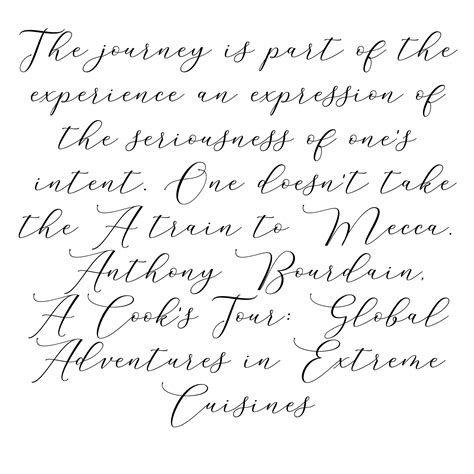 The journey is part of the
experience an expression of
the seriousness of one's
intent. One doesn't take
the A train to Mecca.
Anthony Bourdain,
A Cook's Tour: Global
Adventures in Extreme
Cuisines